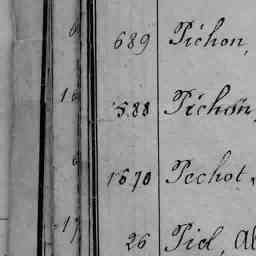 689 Pichon,
588 Pichon,
1670 Pechot
26 Pid,